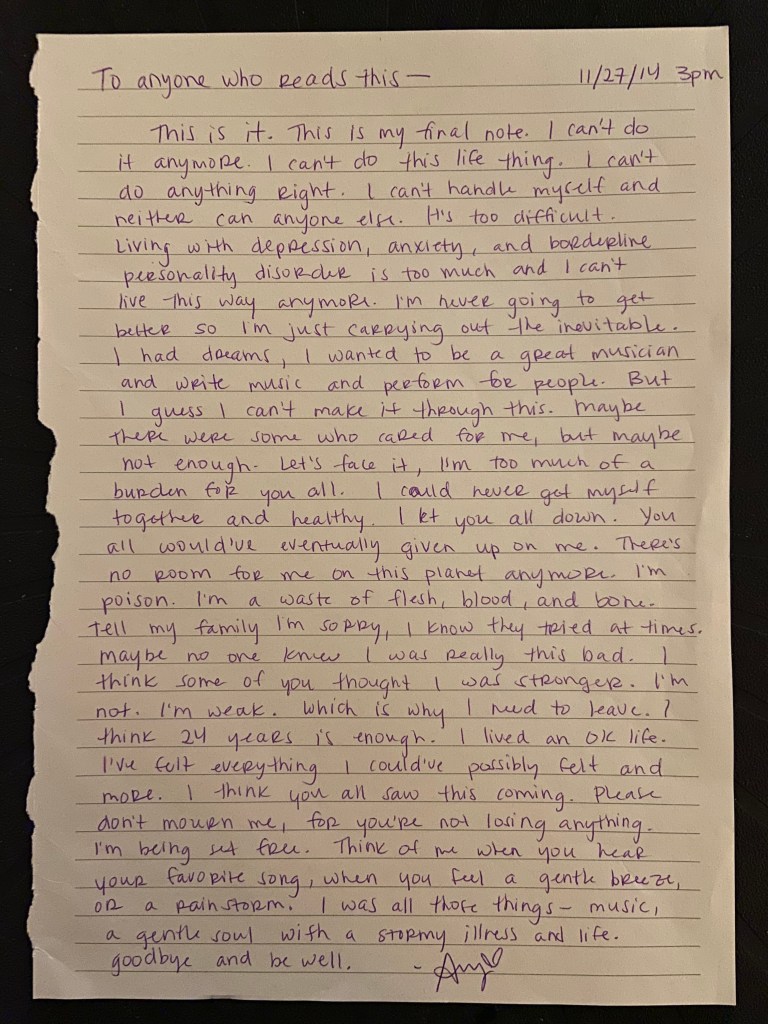 To anyone who reads this— 11/27/14 3pm
This is it. This is my final note. I can't do
it anymore. I can't do this life thing. I can't
do anything right. I can't handle myself and
neither can anyone else. It's too difficult.
Living with depression, anxiety, and borderline
personality disorder is too much and I can't
live this way anymore. I'm never going to get
better so I'm just carrying out the inevitable.
I had dreams, I wanted to be a great musician
and write music and perform for people. But
I guess I can't make it through this. Maybe
there were some who cared for me, but maybe
not enough. Let's face it, I'm too much of a
burden for you all. I could never get myself
together and healthy. I let you all down. You
all would've eventually given up on me. There's
no room for me on this planet anymore. I'm
poison. I'm a waste of flesh, blood, and bone.
Tell my family I'm sorry, I know they tried at times.
Maybe no one knew I was really this bad. I
think some of you thought I was stronger. I'm
not. I'm weak. Which is why I need to leave. I
think 24 years is enough. I lived an OK life.
I've felt everything I could've possibly felt and
more. I think you all saw this coming. Please
don't mourn me, for you're not losing anything.
I'm being set free. Think of me when you hear
your favorite song, when you feel a gentle breeze,
or a rainstorm. I was all those things— music,
a gentle soul with a stormy illness and life.
goodbye and be well. - Amy